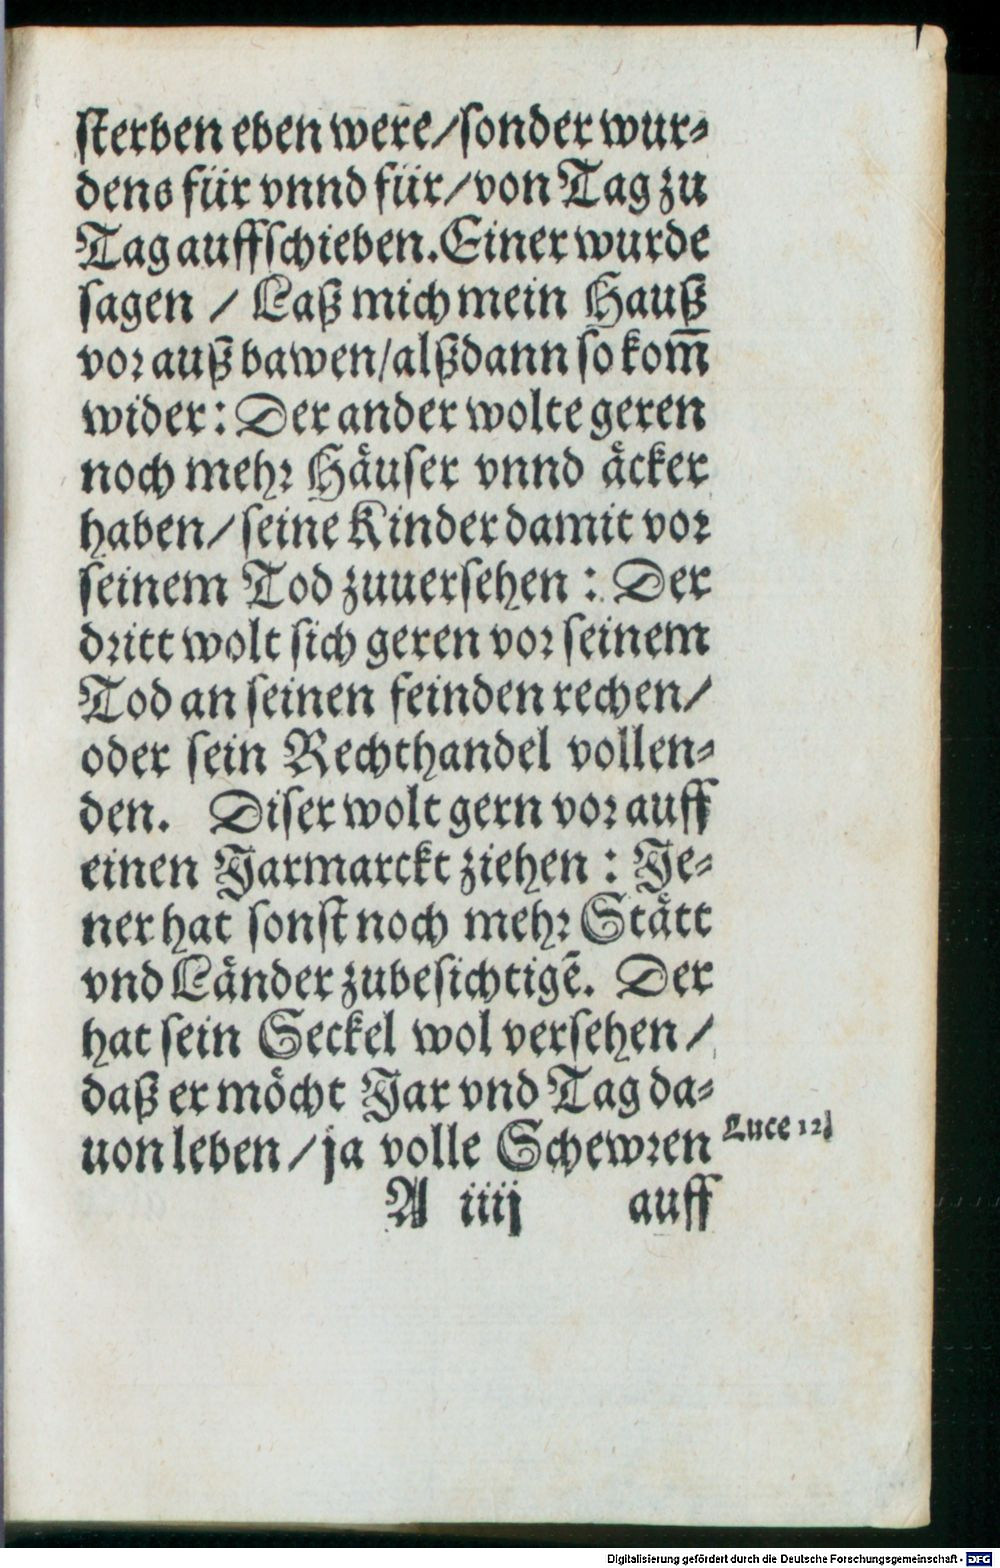 sterben eben were/sonder wur⸗
dens für vnnd für/von Tag zu
Tag auffschieben. Einer wurde
sagen / Laß mich mein Hauß
vor auß bawen/alßdann so kom̅
wider: Der ander wolte geren
noch mehr Häuser vnnd äcker
haben/seine Kinder damit vor
seinem Tod zuuersehen: Der
dritt wolt sich geren vor seinem
Tod an seinen feinden rechen/
oder sein Rechthandel vollen⸗
den. Diser wolt gern vor auff
einen Jarmarckt ziehen: Je⸗
ner hat sonst noch mehr Stätt
vnd Länder zubesichtigē. Der
hat sein Seckel wol versehen/
daß er möcht Jar vnd Tag da⸗
uon leben/ja volle Schewren
Luce 12.
A iiij auff
Digitalisierung gefördert durch die Deutsche Forschungsgemeinschaft - DFG